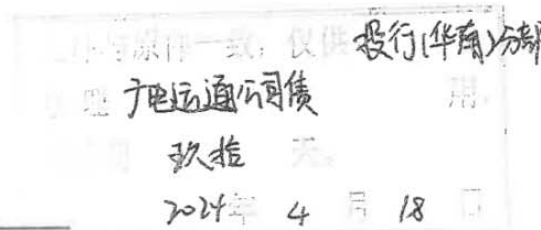 与原件一致，仅供投行（华南）分部
理广电运通公司债用，
玖拾天。
2024年4月18日